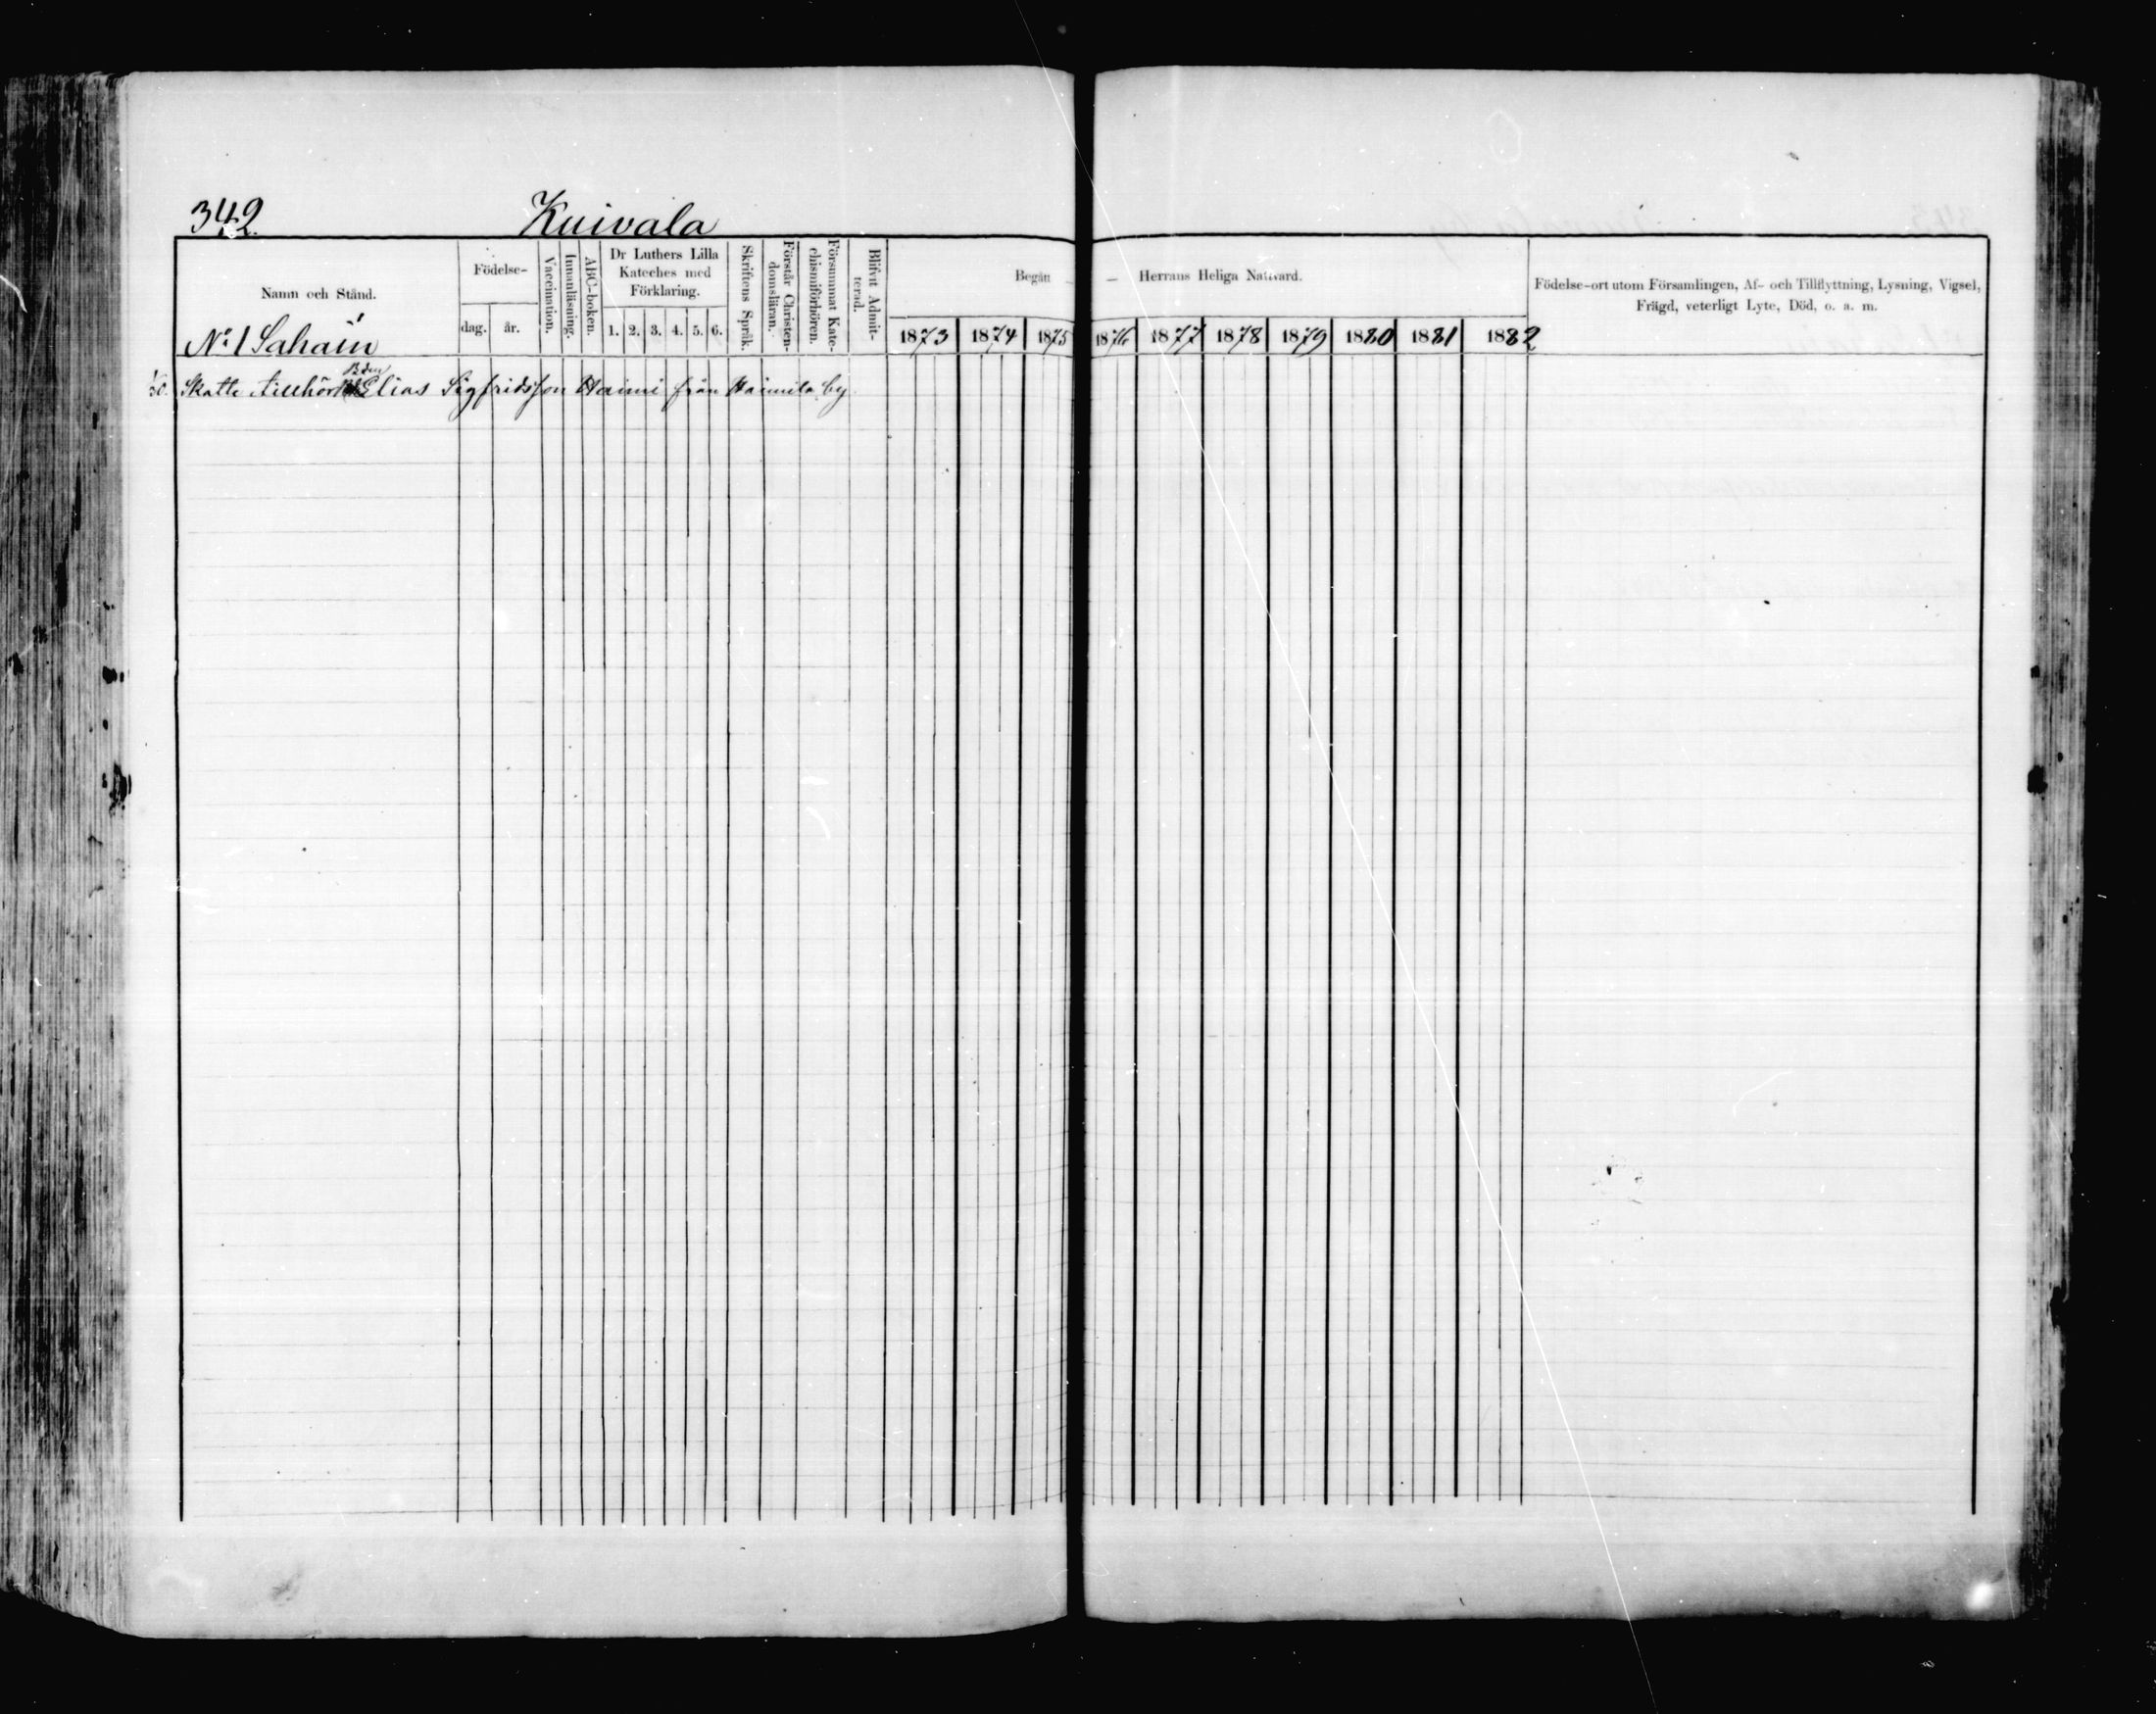 342. Kuivala
Namn och Stånd.
Födelse-
dag. år.
Vaccination.
Innanläsning.
ABC-boken.
Dr Luthers Lilla
Kateches med
Förklaring.
1. 2. 3. 4. 5. 6.
Skriftens Språk.
Förstår Christen-
domsläran.
Försummat Kate-
chismiförhören.
Blifvit Admit-
terad.
Begån — Herrans Heliga Nattvard.
1873 1874 1875 1876 1877 1878 1879 1880 1881 1882
Födelse-ort utom Församlingen, Af- och Tillflyttning, Lysning, Vigsel,
Frägd, veterligt Lyte, Död, o. a. m.
No 1 Sahain
Bden
Skatte tillhör Elias Sigfridsson Haimi från Haimila by